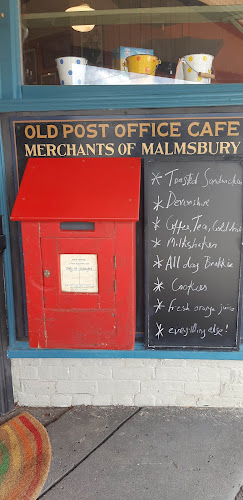 OLD POST OFFICE CAFE
MERCHANTS OF MALMSBURY
* Toasted Sandwiches
* Devonshire
* Coffee, Tea, Cold drink
* Milkshakes
* All day Breakfast
* Cookies
* fresh orange juice
* everything else!